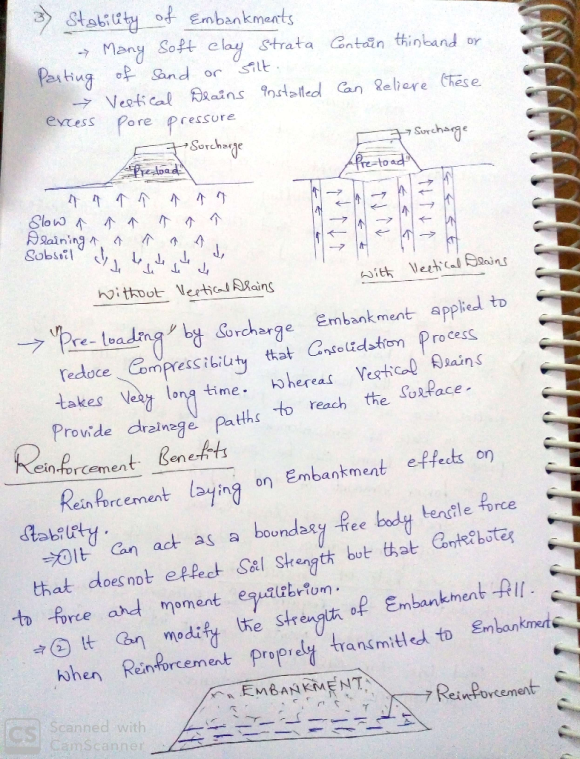 3) Stability of Embankments
→ Many Soft clay strata Contain thinband or
Parting of Sand or Silt.
→ Vertical Drains installed Can Relieve these
excess Pore pressure
Surcharge
"Pre-load"
Slow
Draining
Subsoil
Without Vertical Drains
Surcharge
"Pre-load"
With Vertical Drains
→ "Pre-loading" by Surcharge Embankment applied to
reduce Compressibility that Consolidation Process
takes Very long time. Whereas Vertical Drains
Provide drainage paths to reach the Surface.
Reinforcement Benefits
Reinforcement laying on Embankment effects on
Stability.
⇒ ① It Can act as a boundary free body tensile force
that doesnot effect Soil Strength but that Contributes
to force and moment equilibrium.
⇒ ② It Can modify the strength of Embankment fill.
When Reinforcement proprely transmitted to Embankment
EMBANKMENT
→ Reinforcement
CS Scanned with
CamScanner